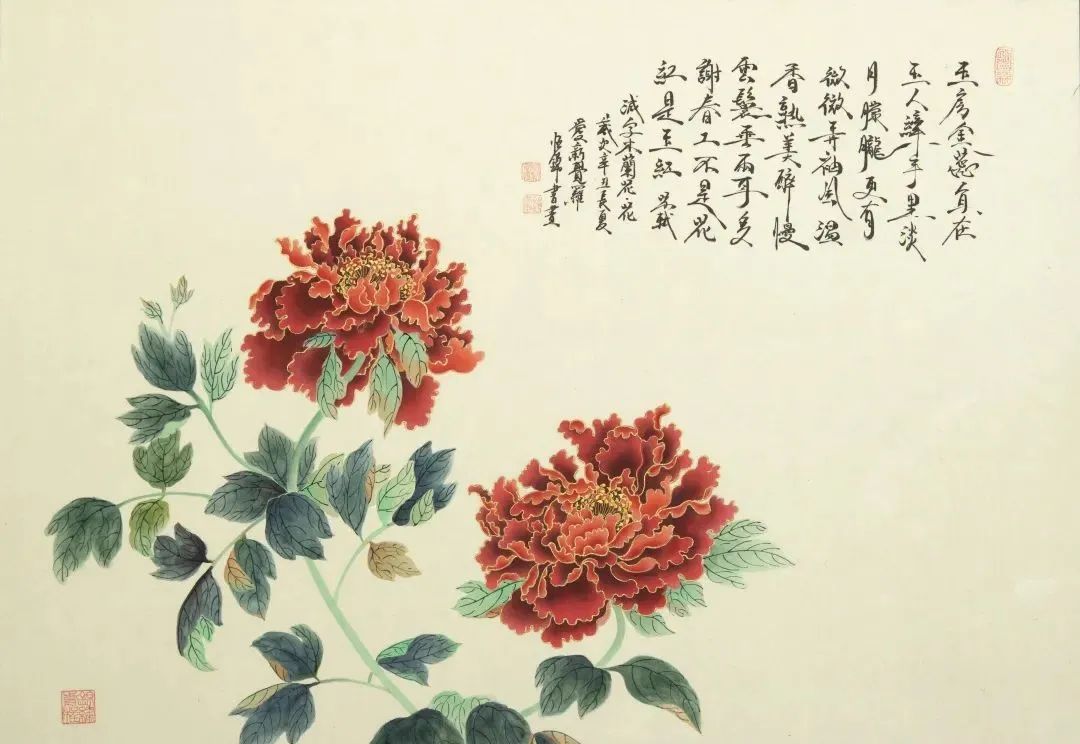 玉房金蕊宜在
玉人纖手里淡
月朦朧更有
微微弄袖風温
香熟美醉慢
雲鬟垂兩耳多
謝春工不是花
紅是玉紅 蘇軾
減字木蘭花·花
歲次辛丑長夏
愛新覺羅
書畫